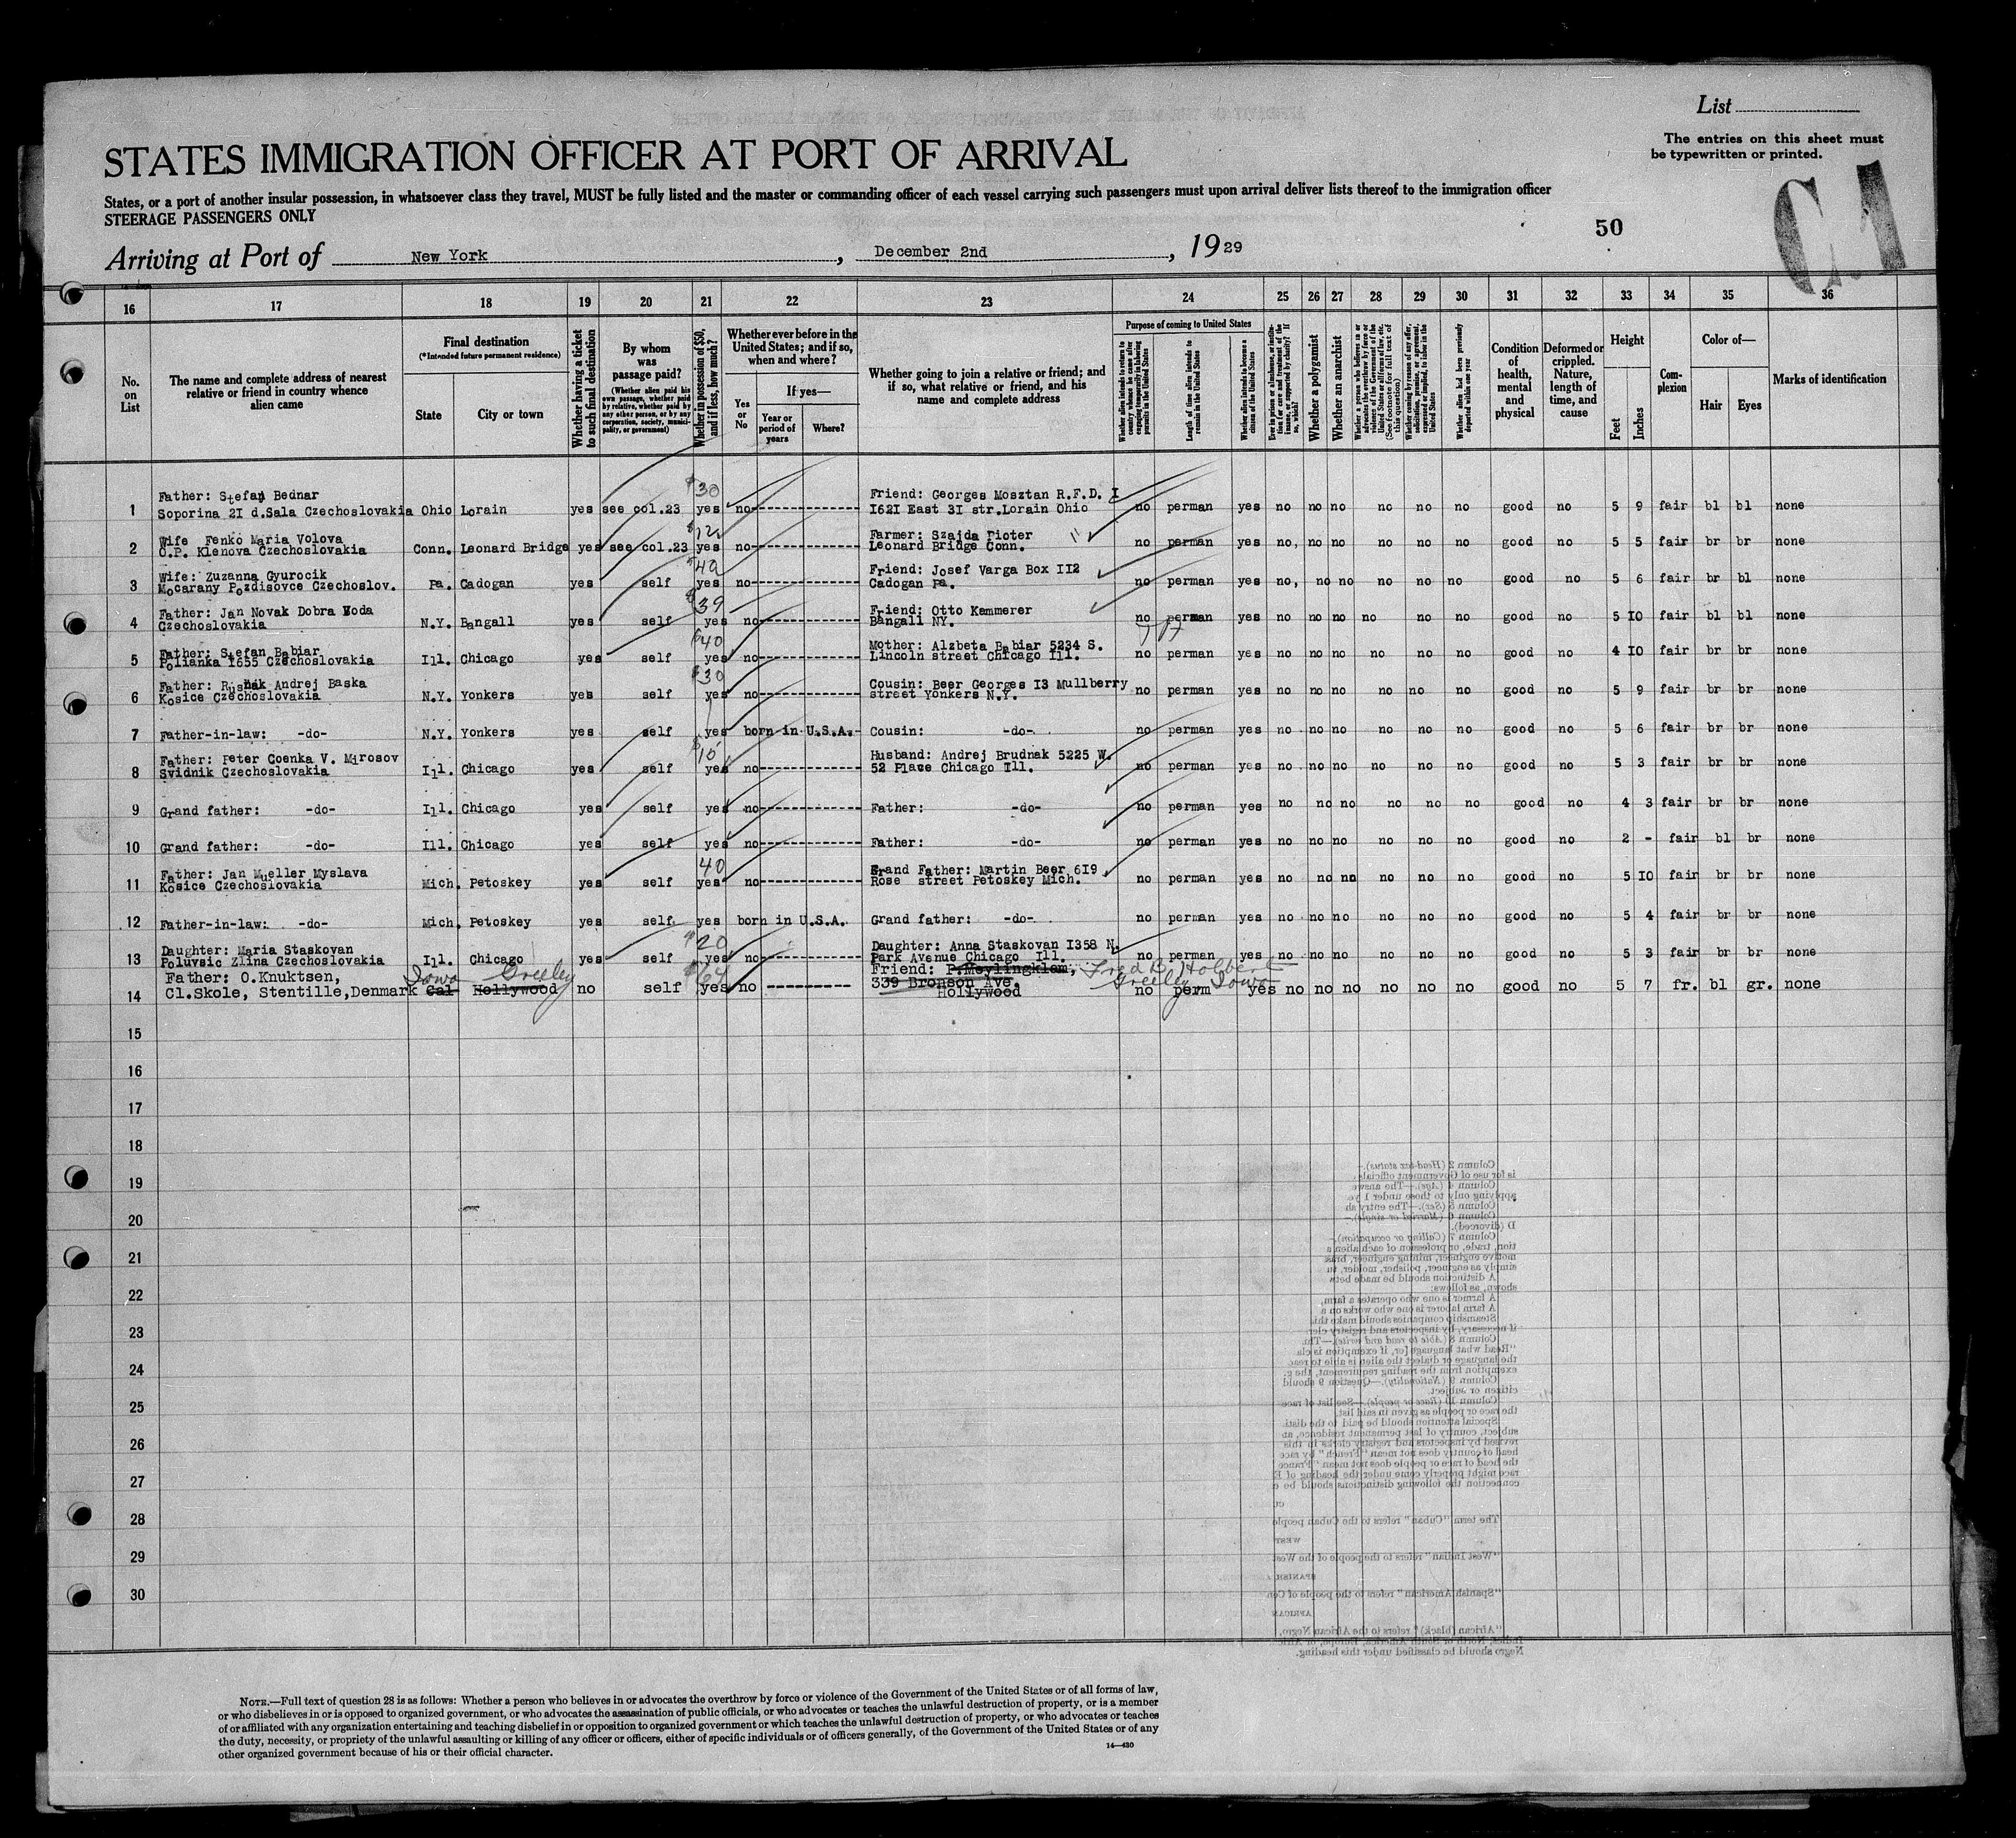 List
The entries on this sheet must
be typewritten or printed.
STATES IMMIGRATION OFFICER AT PORT OF ARRIVAL
States, or a port of another insular possession, in whatsoever class they travel, MUST be fully listed and the master or commanding officer of each vessel carrying such passengers must upon arrival deliver lists thereof to the immigration officer
STEERAGE PASSENGERS ONLY
50
C1
Arriving at Port of New York, December 2nd, 1929
16 17 18 19 20 21 22 23 24 25 26 27 28 29 30 31 32 33 34 35 36
No. on List
The name and complete address of nearest relative or friend in country whence alien came
Final destination
(*Intended future permanent residence)
State
City or town
Whether having a ticket to such final destination
By whom was passage paid?
(Whether alien paid his own passage, whether paid by relative, whether paid by any other person, or by any corporation, society, municipality, or government)
Whether in possession of $50, and if less, how much?
Whether ever before in the United States; and if so, when and where?
Yes or No
If yes—
Year or period of years
Where?
Whether going to join a relative or friend; and if so, what relative or friend, and his name and complete address
Purpose of coming to United States
Whether alien intends to return to country whence he came after engaging temporarily in laboring pursuits in the United States
Length of time alien intends to remain in the United States
Whether alien intends to become a citizen of the United States
Ever in prison or almshouse, or institution for care and treatment of the insane, or supported by charity? If so, which?
Whether a polygamist
Whether an anarchist
Whether a person who believes in or advocates the overthrow by force or violence of the Government of the United States or all forms of law, etc. (See footnote for full text of this question)
Whether coming by reason of any offer, solicitation, promise, or agreement, expressed or implied, to labor in the United States
Whether alien had been previously deported within one year
Condition of health, mental and physical
Deformed or crippled. Nature, length of time, and cause
Height
Feet
Inches
Complexion
Color of—
Hair
Eyes
Marks of identification
Father: Stefan Bednar $30 Friend: Georges Mosztan R.F.D. I
1 Soporina 2I d.Sala Czechoslovakia Ohio Lorain yes see col.23 yes no I62I East 3I str.Lorain Ohio no perman yes no no no no no no good no 5 9 fair bl bl none
Wife Fenko Maria Volova $12 Farmer: Szajda Pioter
2 O.P. Klenova Czechoslovakia Conn. Leonard Bridge yes see col.23 yes no Leonard Bridge Conn. no perman yes no, no no no no no good no 5 5 fair br br none
Wife: Zuzanna Gyurocik $42 Friend: Josef Varga Box II2
3 Mocarany Pozdisovce Czechoslov. Pa. Cadogan yes self yes no Cadogan Pa. no perman yes no, no no no no no good no 5 6 fair br bl none
Father: Jan Novak Dobra Voda $39 Friend: Otto Kammerer
4 Czechoslovakia N.Y. Bangall yes self yes no Bangall NY. no perman yes no no no no no no good no 5 IO fair bl bl none
Father: Stefan Babiar $40 Mother: Alzbeta Babiar 5234 S.
5 Polianka I655 Czechoslovakia Ill. Chicago yes self yes no Lincoln street Chicago Ill. no perman yes no no no no no no good no 4 IO fair br br none
Father: Rusnak Andrej Baska $30 Cousin: Beer Georges I3 Mullberry
6 Kosice Czechoslovakia N.Y. Yonkers yes self yes no street Yonkers N.Y. no perman yes no no no no no no good no 5 9 fair br br none
7 Father-in-law: -do- N.Y. Yonkers yes self yes born in U.S.A. Cousin: -do- no perman yes no no no no no no good no 5 6 fair br br none
Father: Peter Coenka V. Mirosov $15 Husband: Andrej Brudnak 5225 W.
8 Svidnik Czechoslovakia Ill. Chicago yes self yes no 52 Place Chicago Ill. no perman yes no no no no no no good no 5 3 fair br br none
9 Grand father: -do- Ill. Chicago yes self yes no Father: -do- no perman yes no no no no no no good no 4 3 fair br br none
10 Grand father: -do- Ill. Chicago yes self yes no Father: -do- no perman yes no no no no no no good no 2 - fair bl br none
Father: Jan Mueller Myslava 40 Grand Father: Martin Beer 6I9
11 Kosice Czechoslovakia Mich. Petoskey yes self yes no Rose street Petoskey Mich. no perman yes no no no no no no good no 5 IO fair br br none
12 Father-in-law: -do- Mich. Petoskey yes self yes born in U.S.A. Grand father: -do- no perman yes no no no no no no good no 5 4 fair br br none
Daughter: Maria Staskovan $20 Daughter: Anna Staskovan I358 N.
13 Poluvsic Zlina Czechoslovakia Ill. Chicago yes self yes no Park Avenue Chicago Ill. no perman yes no no no no no no good no 5 3 fair br br none
Father: O.Knuktsen, Iowa Greeley Friend: P.Meylingklem, Fred B. Holbert
14 Cl.Skole, Stentille,Denmark Cal Hollywood no self yes no 339 Bronson Ave. Greeley Iowa
Hollywood no perm yes no no no no no no good no 5 7 fr. bl gr. none
15
16
17
18
19
20
21
22
23
24
25
26
27
28
29
30
NOTE.—Full text of question 28 is as follows: Whether a person who believes in or advocates the overthrow by force or violence of the Government of the United States or of all forms of law,
or who disbelieves in or is opposed to organized government, or who advocates the assassination of public officials, or who advocates or teaches the unlawful destruction of property, or is a member
of or affiliated with any organization entertaining and teaching disbelief in or opposition to organized government or which teaches the unlawful destruction of property, or who advocates or teaches
the duty, necessity, or propriety of the unlawful assaulting or killing of any officer or officers, either of specific individuals or of officers generally, of the Government of the United States or of any
other organized government because of his or their official character.
14—430